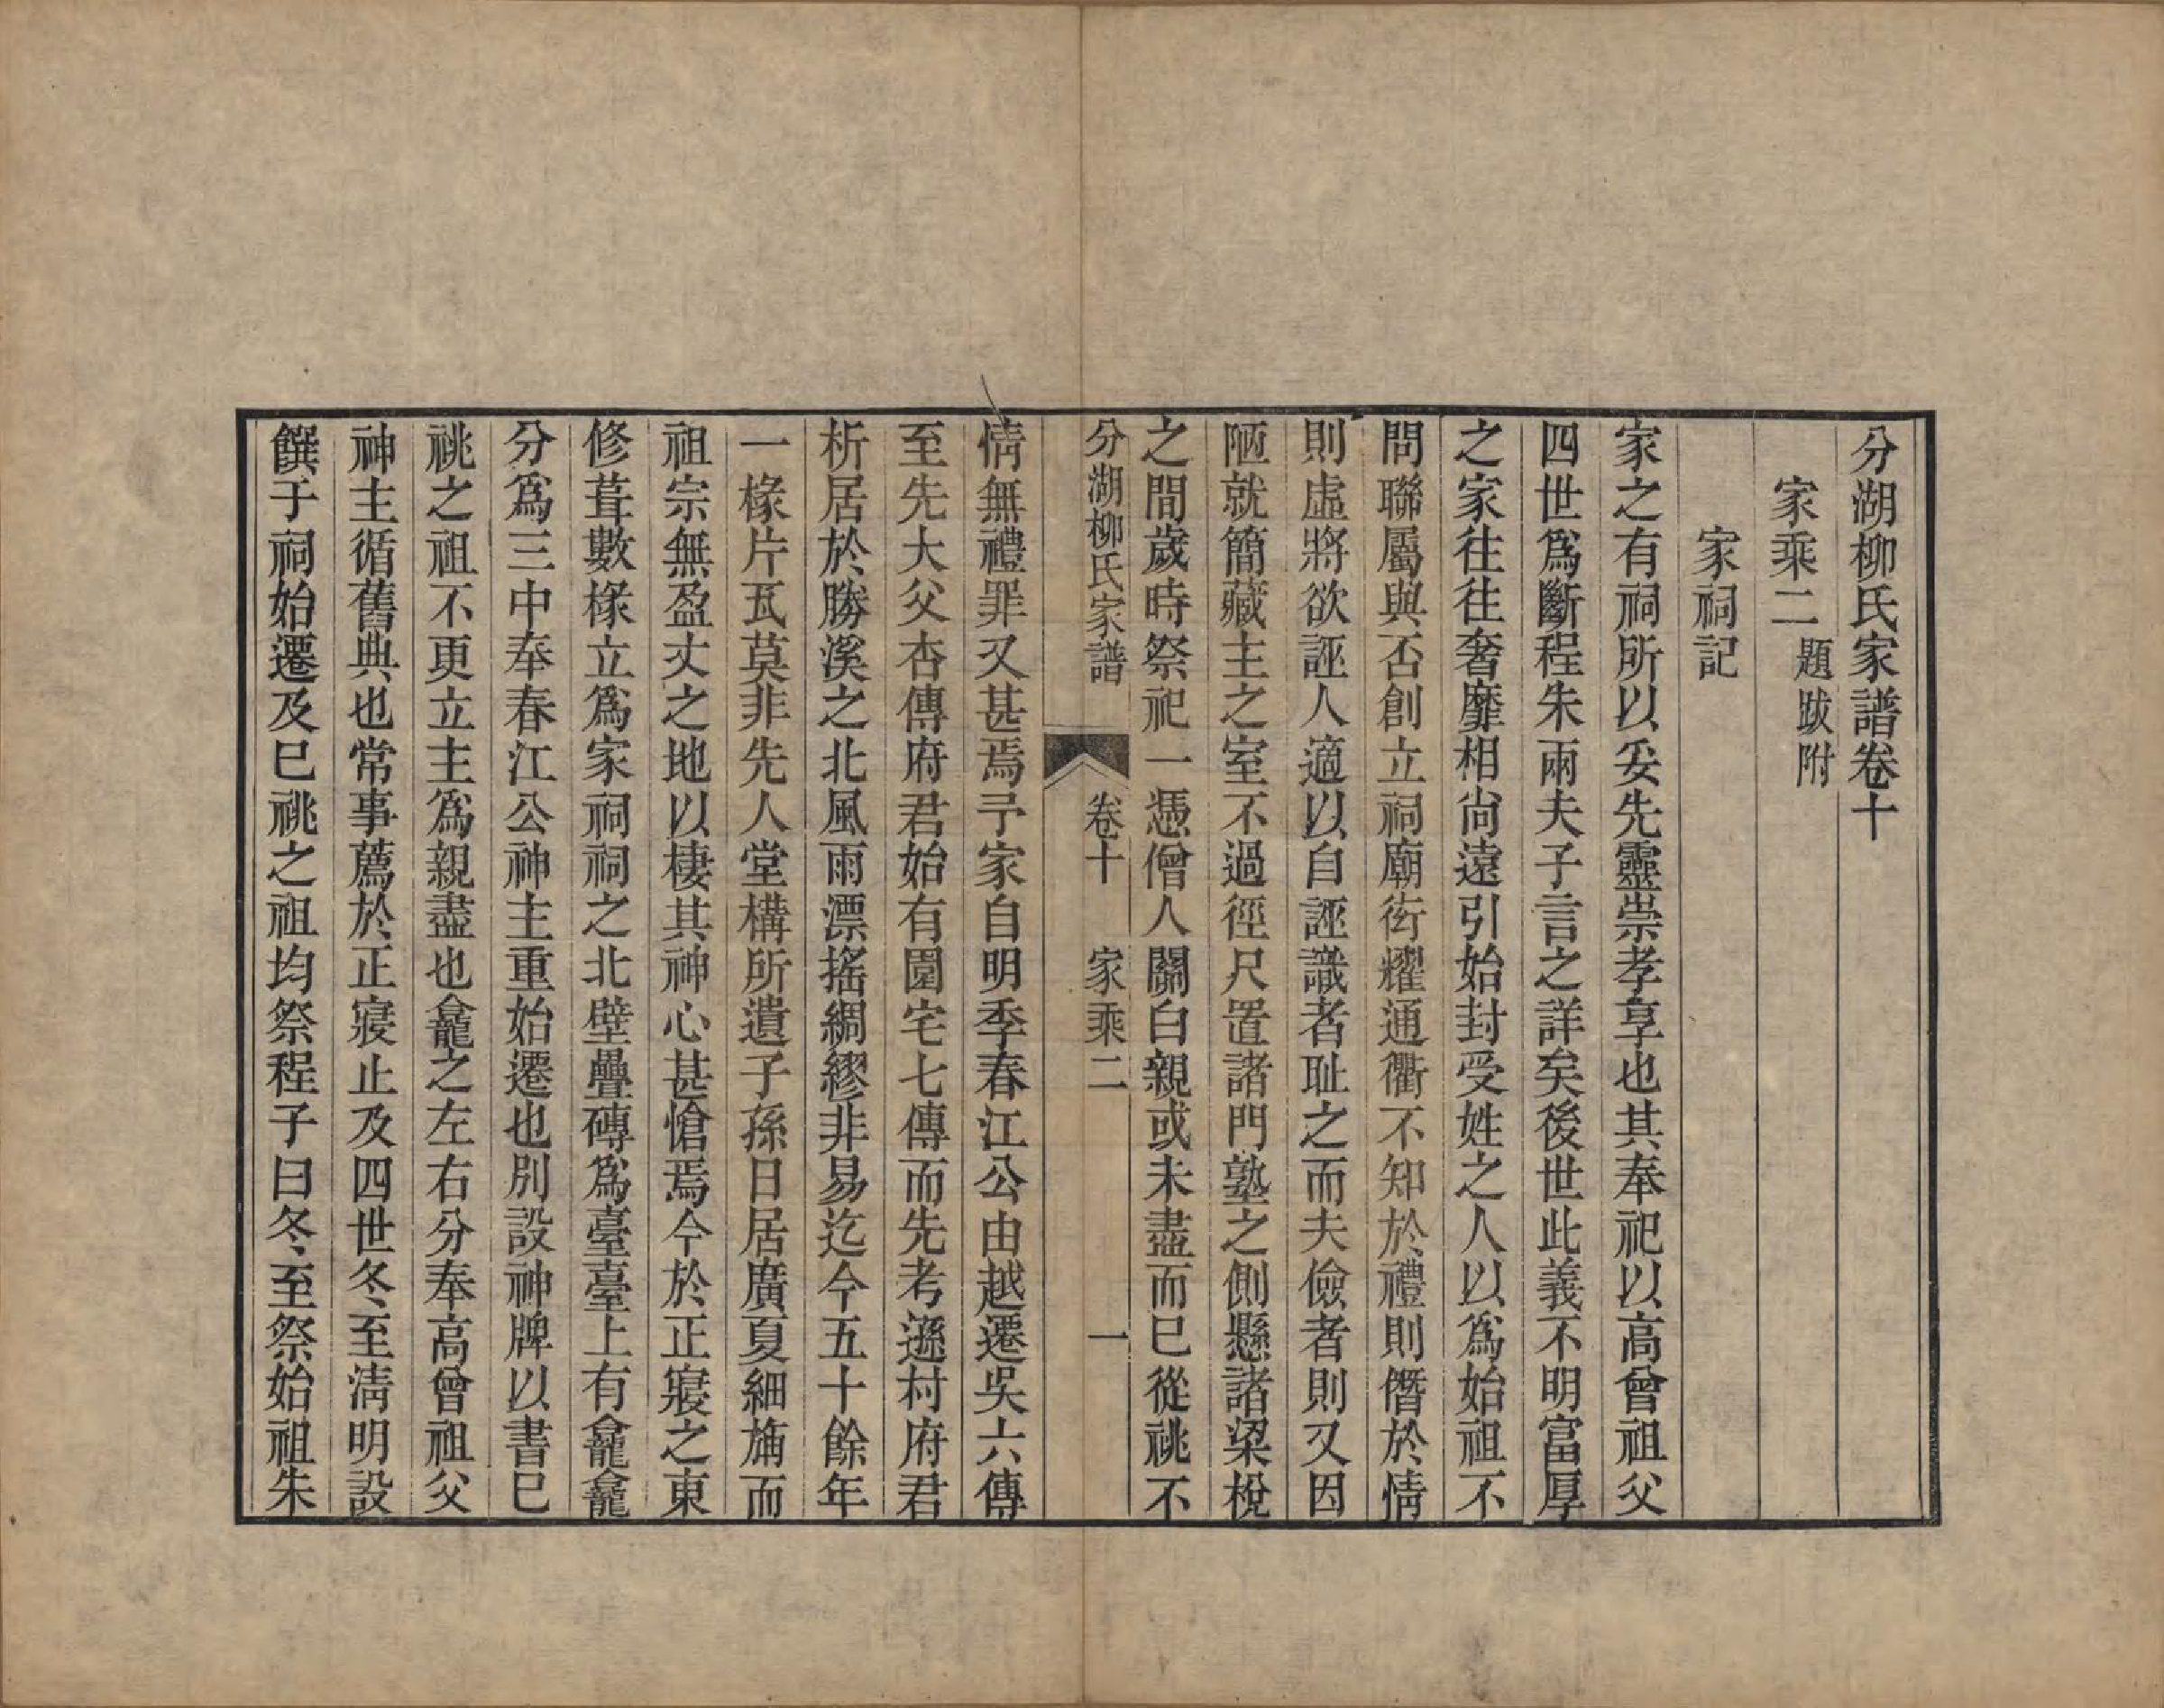 分湖柳氏家譜卷十
家乘二題跋附
家祠記
家之有祠所以妥先靈崇孝享也其奉祀以高曾祖父
四世爲斷程朱兩夫子言之詳矣後世此義不明富厚
之家往往奢靡相尚遠引始封受姓之人以爲始祖不
問聯屬與否創立祠廟衒耀通衢不知於禮則僭於情
則虛將欲誣人適以自誣識者耻之而夫儉者則又因
陋就簡藏主之室不過徑尺置諸門塾之側懸諸梁棁
之間歲時祭祀一憑僧人關白親或未盡而巳從祧不
分湖柳氏家譜 卷十 家乘二 一
情無禮罪又甚焉予家自明季春江公由越遷吳六傳
至先大父杏傳府君始有園宅七傳而先考遜村府君
析居於勝溪之北風雨漂搖綢繆非易迄今五十餘年
一椽片瓦莫非先人堂構所遺子孫日居廣夏細旃而
祖宗無盈丈之地以棲其神心甚愴焉今於正寢之東
修葺數椽立爲家祠祠之北壁疊磚爲臺臺上有龕龕
分爲三中奉春江公神主重始遷也別設神牌以書巳
祧之祖不更立主爲親盡也龕之左右分奉高曾祖父
神主循舊典也常事薦於正寢止及四世冬至淸明設
饌于祠始遷及巳祧之祖均祭程子曰冬至祭始祖朱